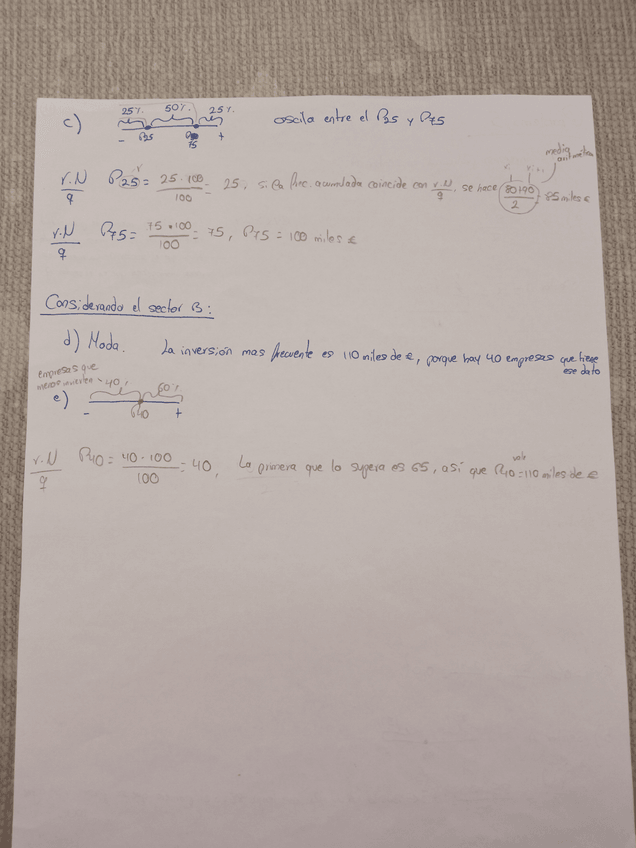 25% 50% 25%
c) - P25 P75 + oscila entre el P25 y P75
media aritmética
r·N/q P25 = 25·100/100 = 25, si la frec. acumulada coincide con r·N/q, se hace 80+90/2 = 85 miles €
r·N/q P75 = 75·100/100 = 75, P75 = 100 miles €
Considerando el sector B:
d) Moda. La inversión mas frecuente es 110 miles de €, porque hay 40 empresas que tiene
ese dato
empresas que
menos invierten 40% 60%
e) - P40 +
r·N/q P40 = 40·100/100 = 40, La primera que lo supera es 65, así que P40 = 110 miles de €